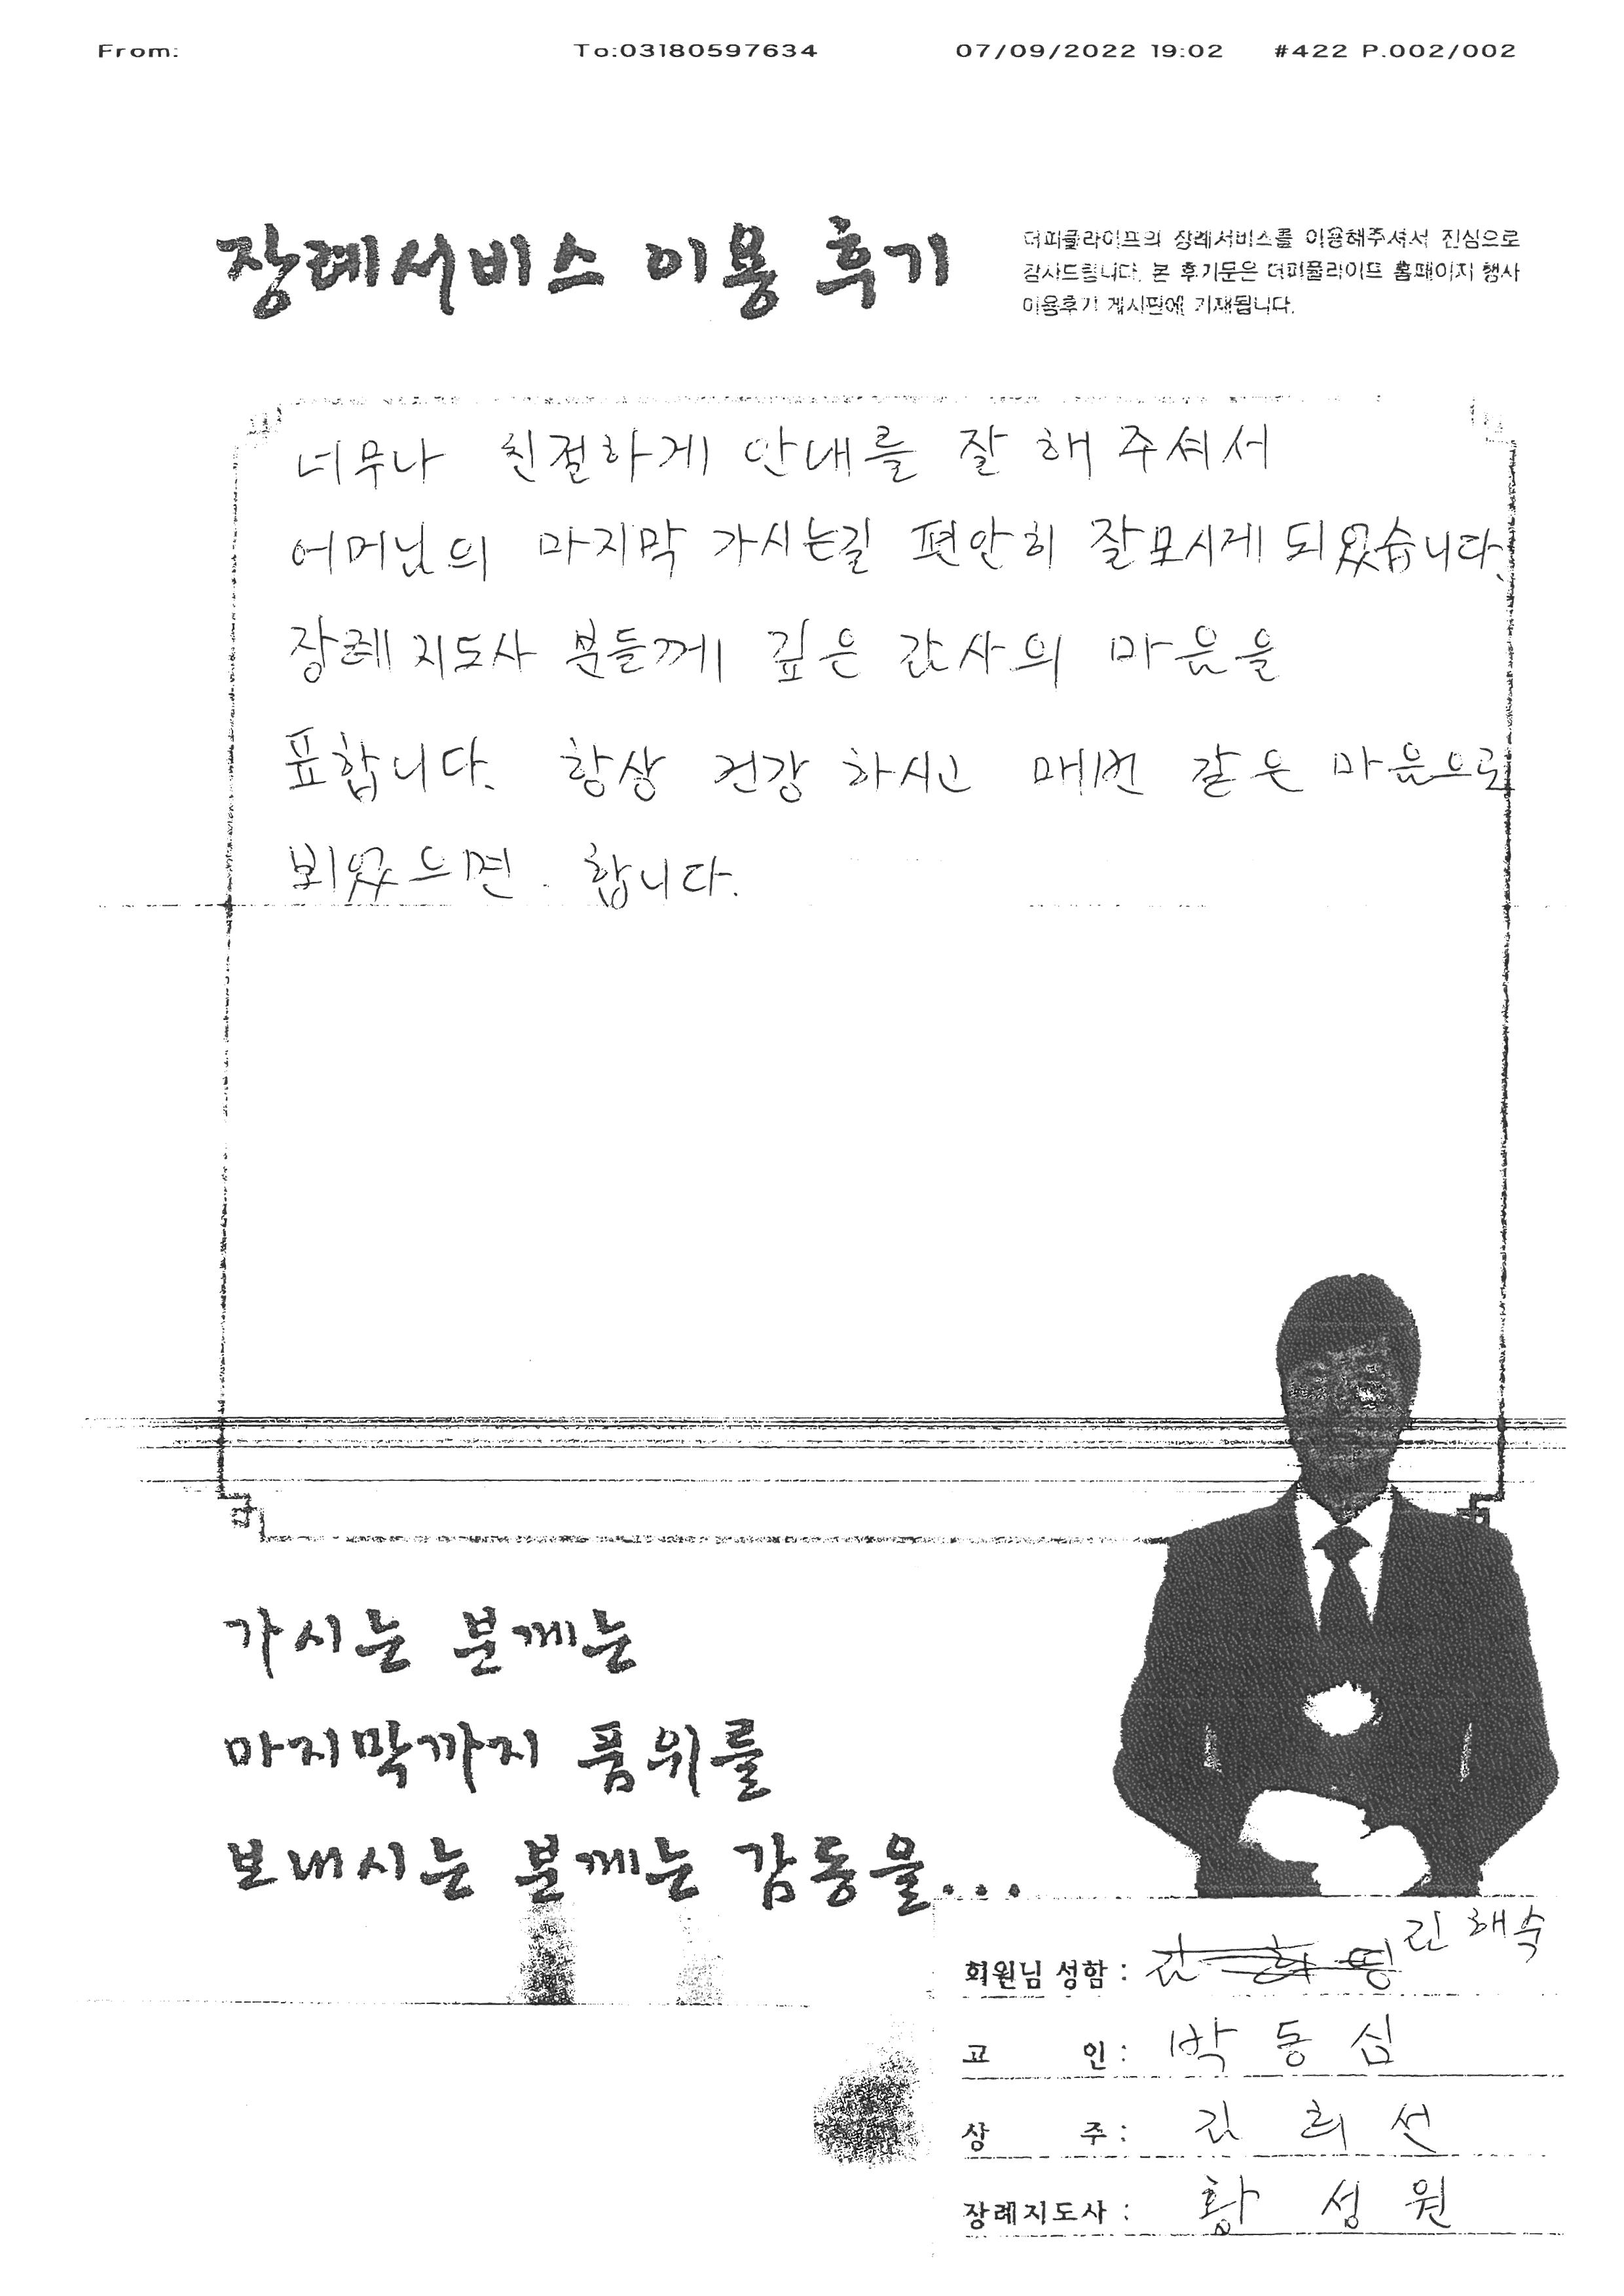 From: To:03180597634 07/09/2022 19:02 #422 P.002/002
장례서비스 이용 후기
더피플라이프의 장례서비스를 이용해주셔서 진심으로
감사드립니다. 본 후기문은 더피플라이프 홈페이지 행사
이용후기 게시판에 기재됩니다.
너무나 친절하게 안내를 잘 해 주셔서
어머님의 마지막 가시는길 편안히 잘모시게 되었습니다.
장례 지도사 분들께 깊은 감사의 마음을
표합니다. 항상 건강 하시고 매번 같은 마음으로
뵈었으면 합니다.
가시는 분께는
마지막까지 품위를
보내시는 분께는 감동을...
회원님 성함 : 김해숙
고 인 : 박동심
상 주 : 김희선
장례지도사 : 황성원